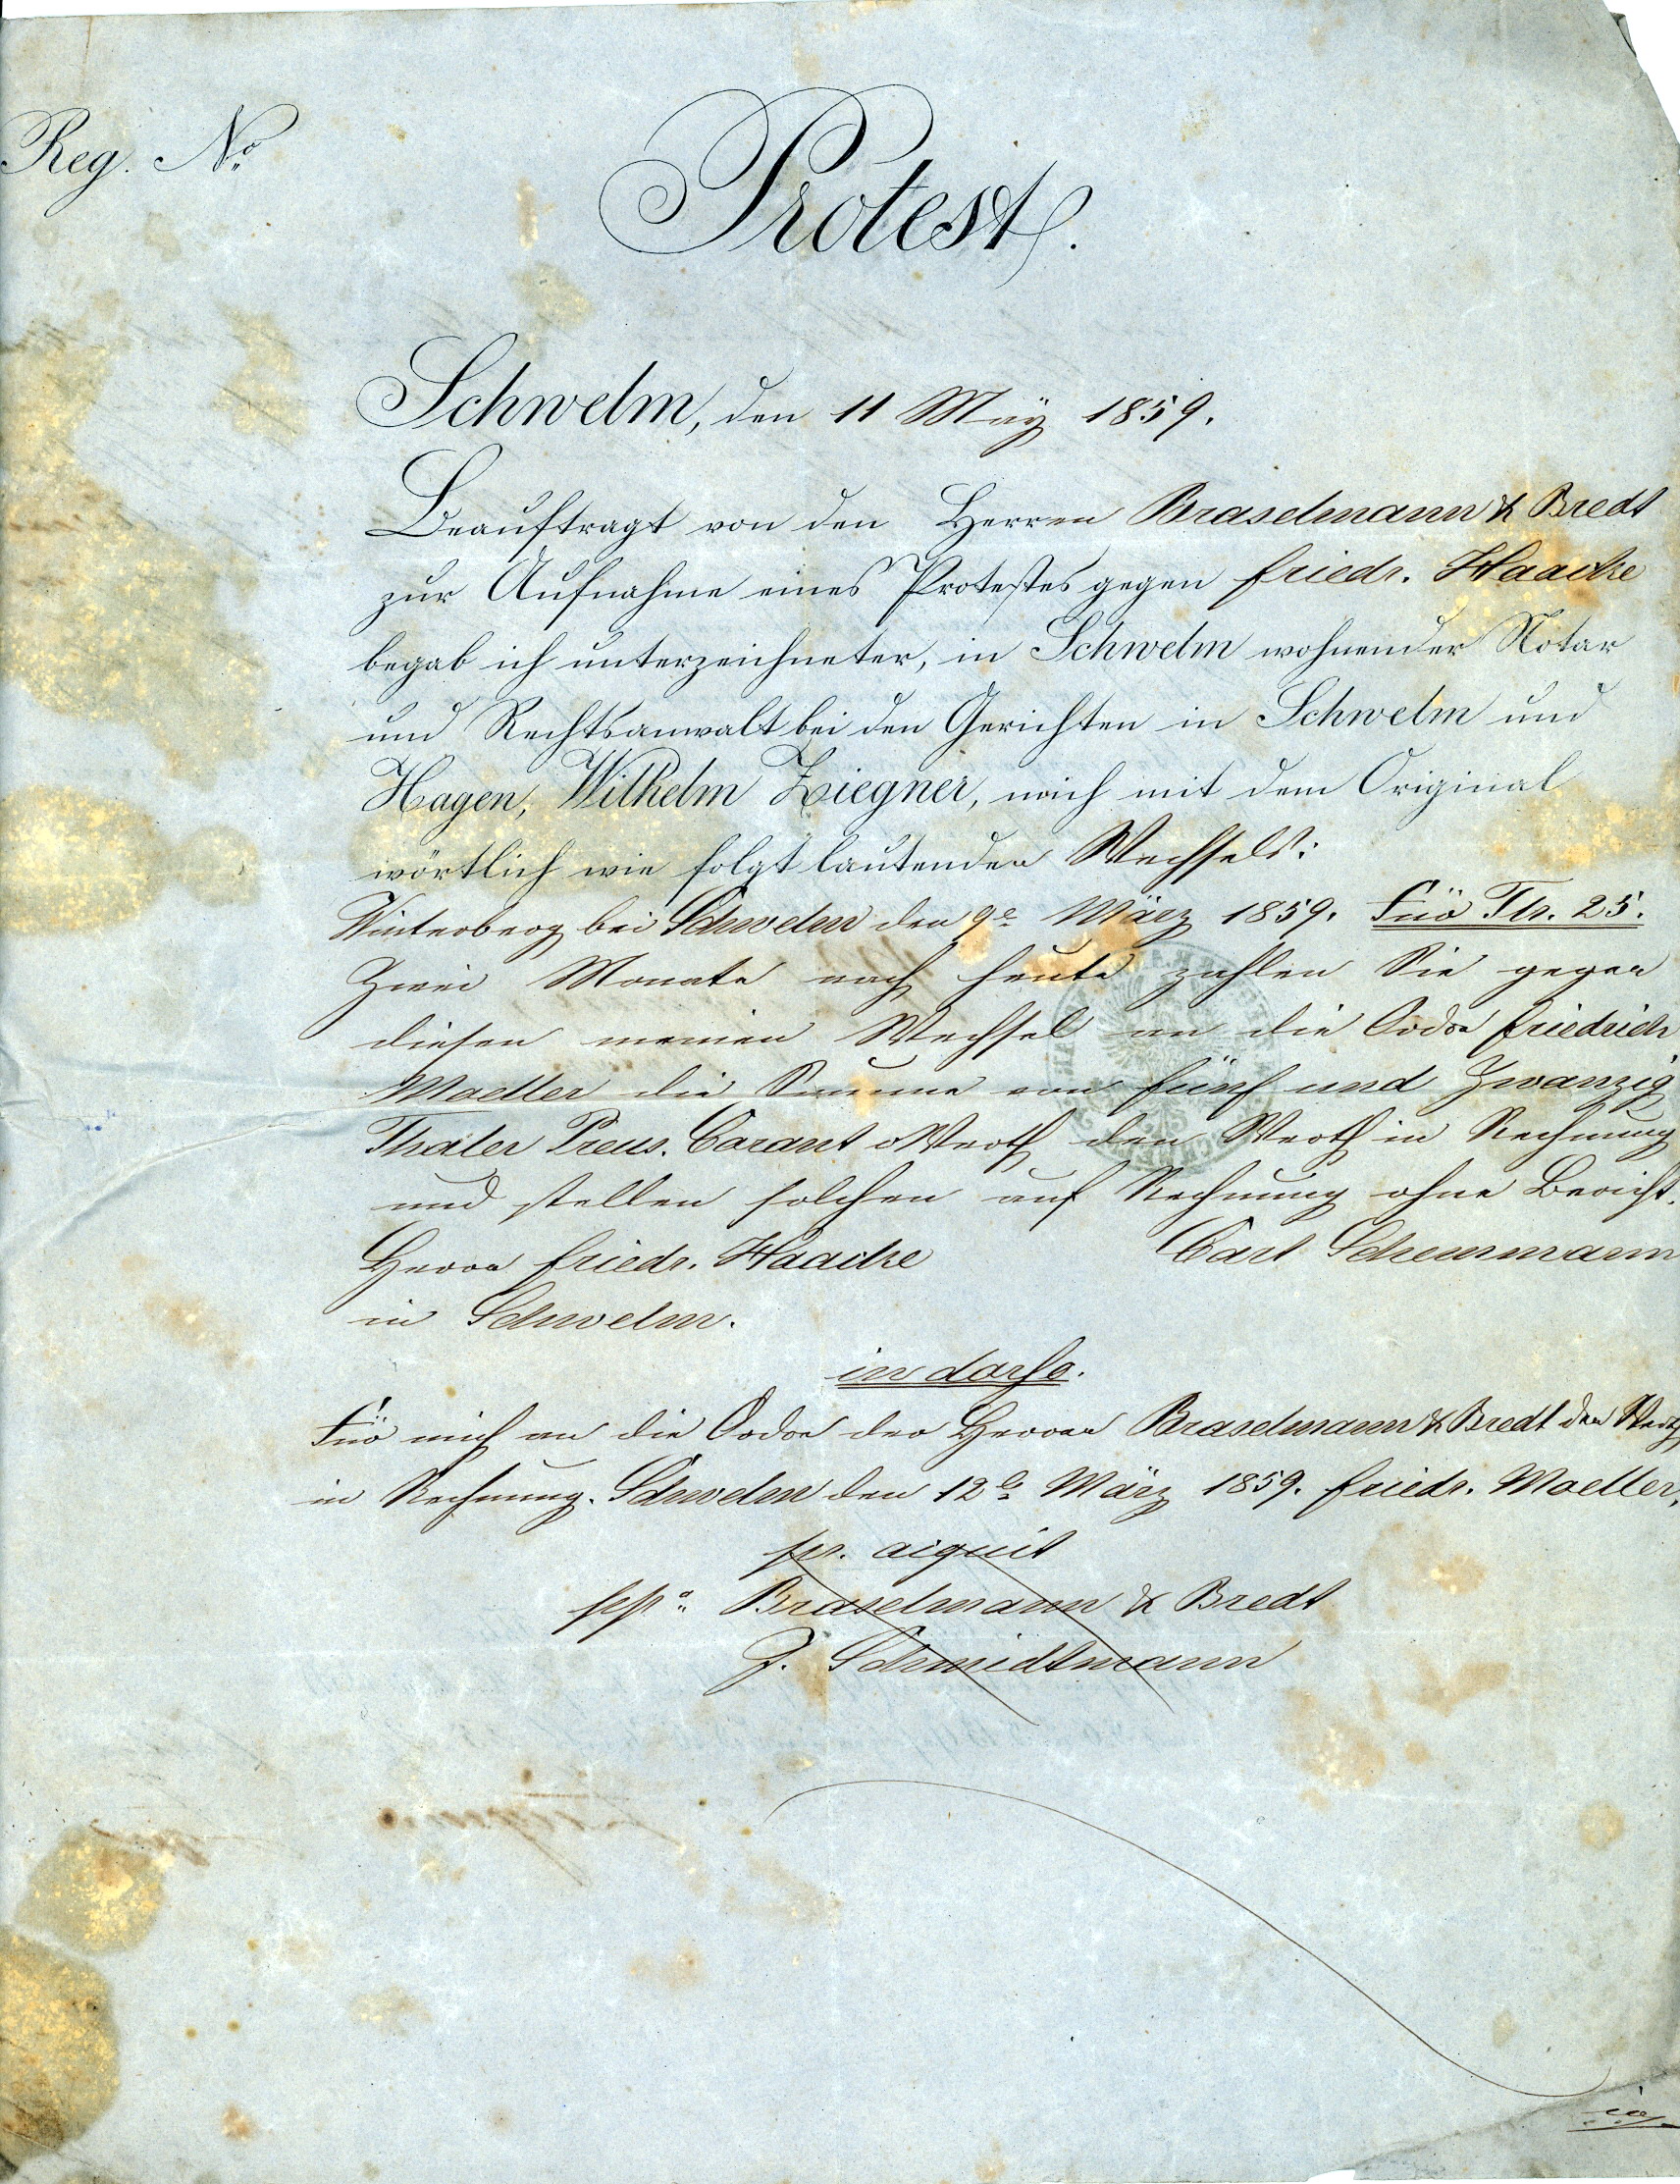 Reg. No
Protest.
Schwelm, den 11 May 1859.
Beauftragt von den Herren Braselmann & Bredt
zur Aufnahme eines Protestes gegen Friedr. Haacke
begab ich unterzeichneter, in Schwelm wohnender Notar
und Rechtsanwalt bei den Gerichten in Schwelm und
Hagen, Wilhelm Ziegner, mich mit dem Original
wörtlich wie folgt lautenden Wechsels:
Winterberg bei Schwelm den 9e März 1859. Für Tlr. 25.
Zwei Monate nach heute zahlen Sie gegen
diesen meinen Wechsel an die Ordre Friedrich
Moeller die Summe von fünf und Zwanzig
Thaler Preus. Corant den Werth in Rechnung
und stellen solchen auf Rechnung ohne Bericht.
Herrn Friedr. Haacke Carl Scheurmann
in Schwelm.
in dorso.
Für mich an die Ordre der Herren Braselmann & Bredt den Werth
in Rechnung. Schwelm den 12e März 1859. Friedr. Moeller.
pr. aiquit
ppa Braselmann & Bredt
J. Schmidtmann